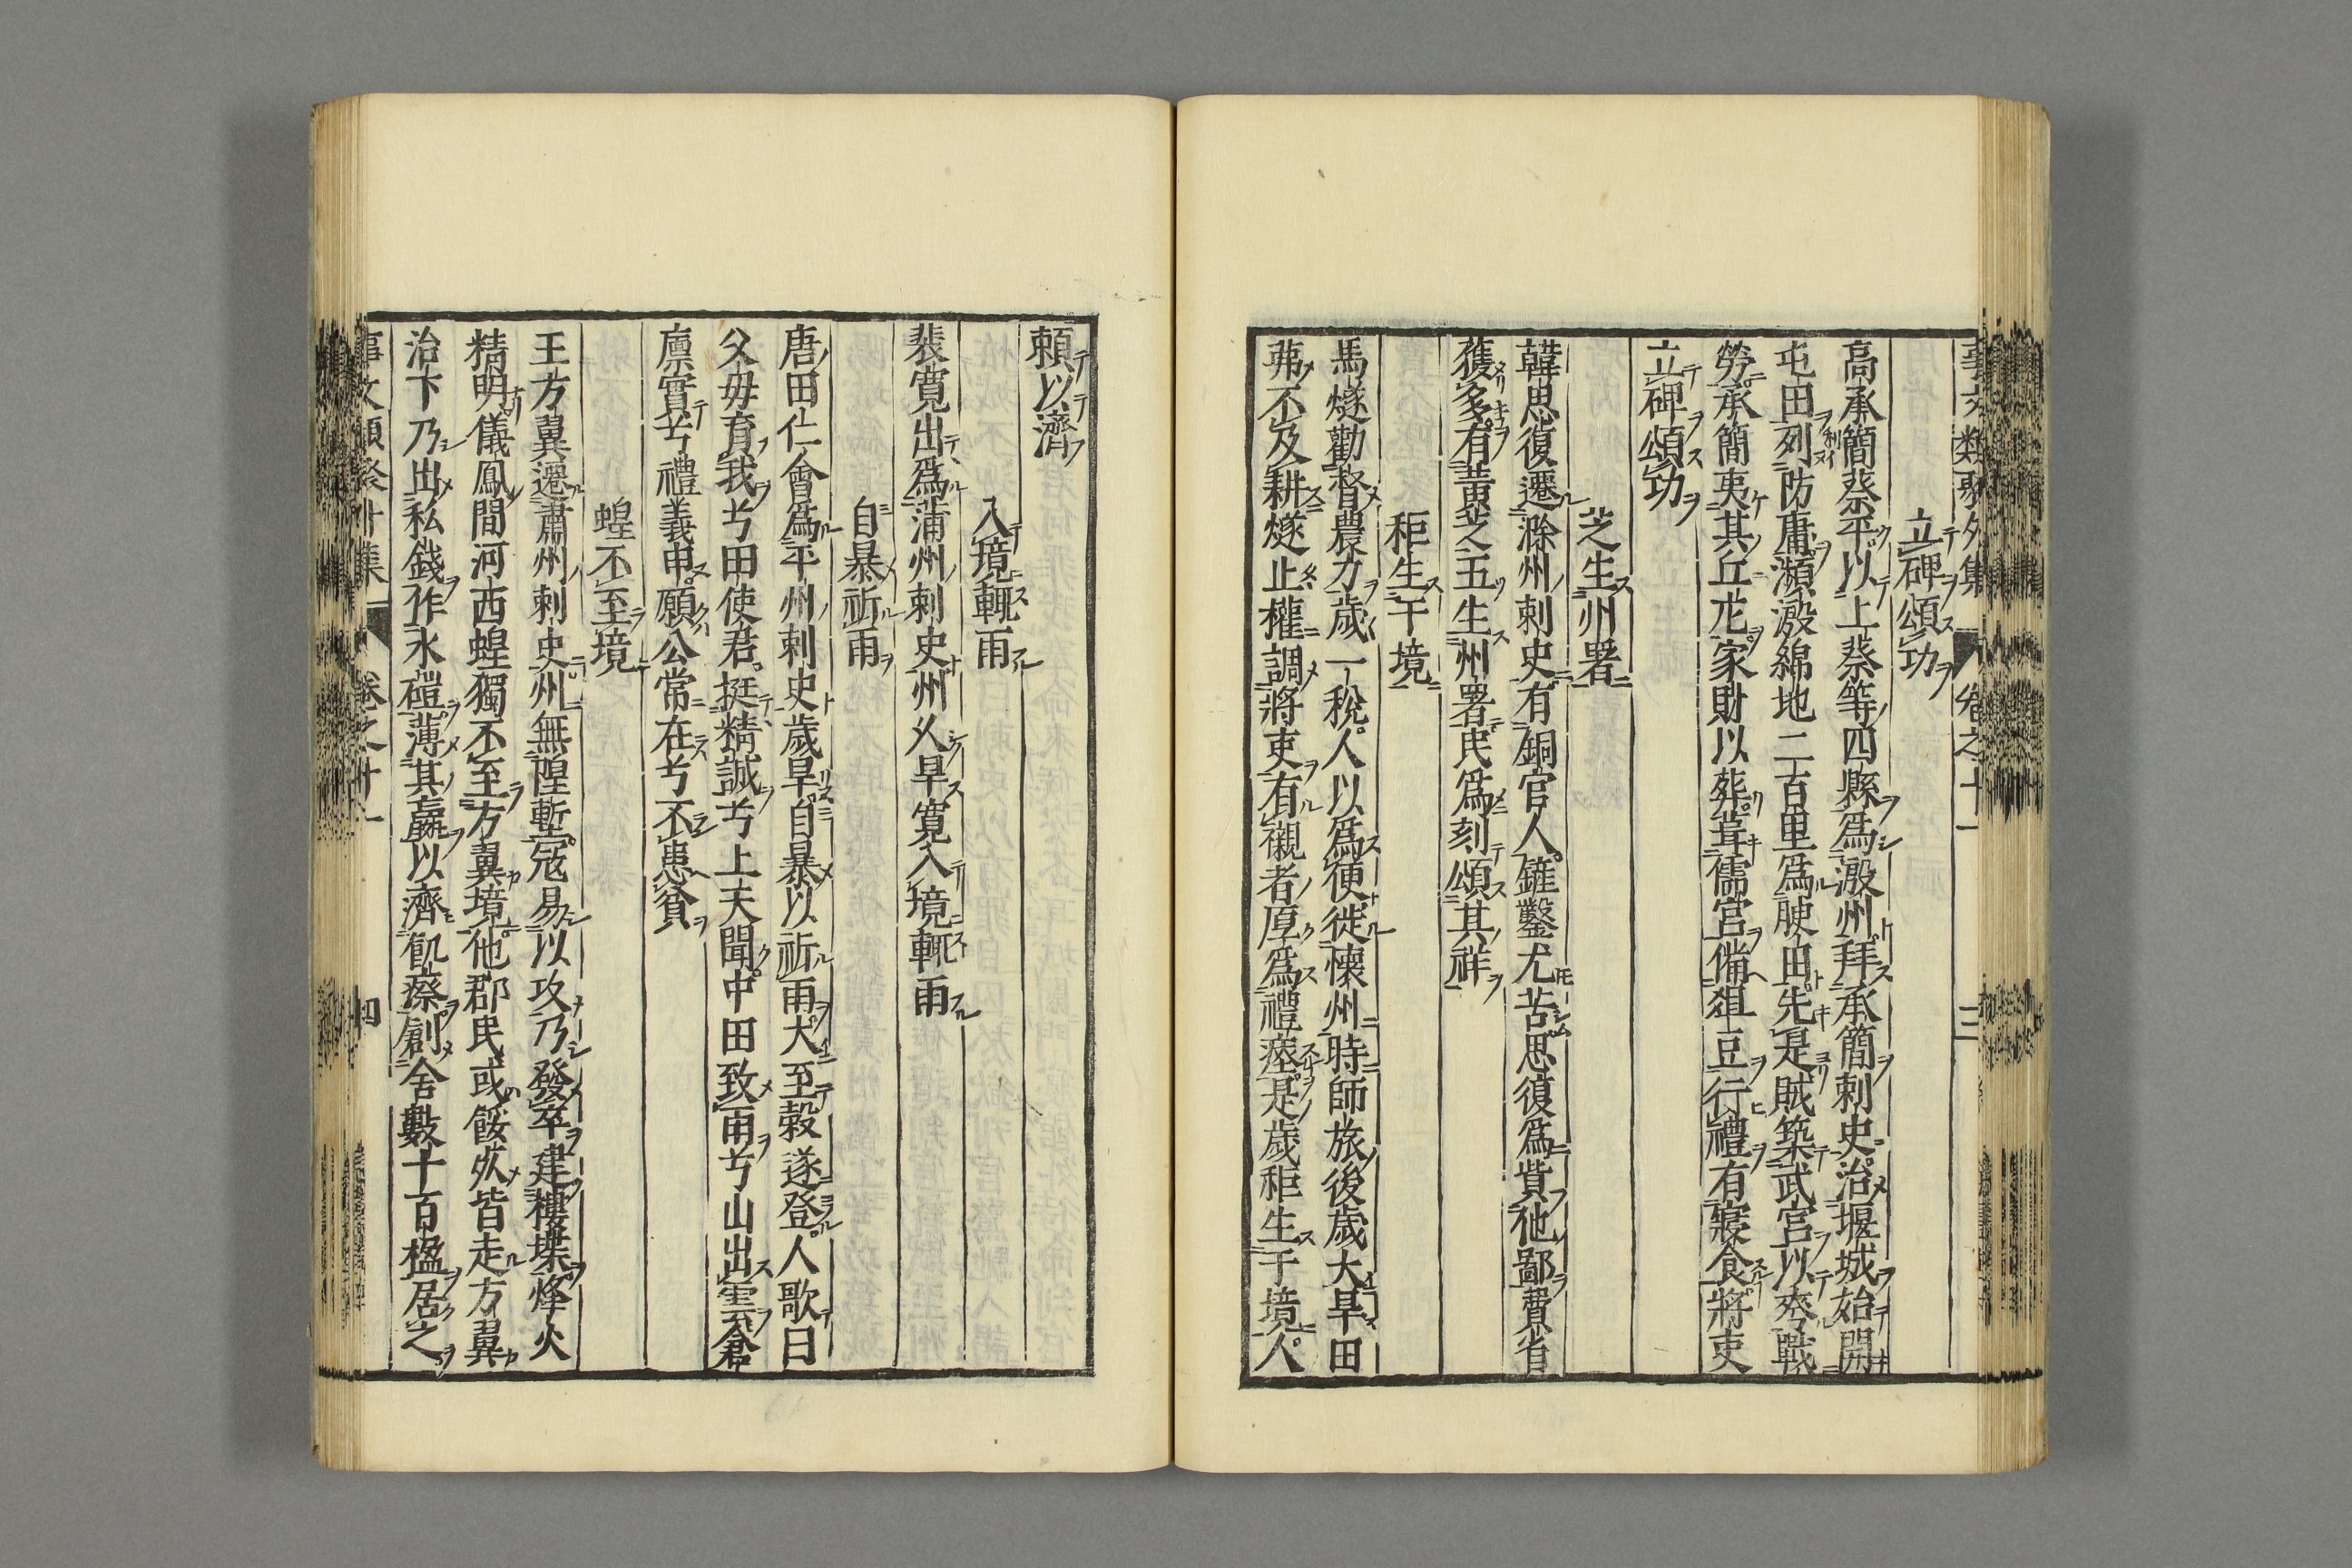 事文類聚外集 卷之十一 三
立碑頌功
高承簡蔡平以上蔡等四縣爲溵州拜承簡刺史治堰城始開
屯田列防庸瀕溵綿地二百里爲腴田先是賊築武宮以夸戰
勞承簡夷其丘庀家財以葬葺儒宮備俎豆行禮有寢食將吏
立碑頌功
芝生州署
韓思復遷滁州刺史有銅官人錐鑿尤苦思復爲貲他鄙費省
獲多有黄芝五生州署民爲刻頌其祥
秬生于境
馬燧勸督農力歲一稅人以爲便徙懷州時師旅後歲大旱田
茀不及耕燧止橫調將吏有襯者厚爲禮瘞是歲秬生于境人
頼以濟
入境輒雨
裴寛出爲蒲州刺史州久旱寛入境輒雨
自暴祈雨
唐田仁會爲平州刺史歲旱自暴以祈雨大至穀遂登人歌曰
父毋育我兮田使君挺精誠兮上天聞中田致雨兮山出雲倉
廪實兮禮義申願公常在兮不患貧
蝗不至境
王方翼遷肅州刺史州無隍塹冦易以攻乃發卒建樓堞烽火
精明儀鳳間河西蝗獨不至方翼境他郡民或餒死皆走方翼
治下乃出私錢作水磑薄其贏以濟飢瘵創舍數十百楹居之
事文類聚外集 卷之十一 四